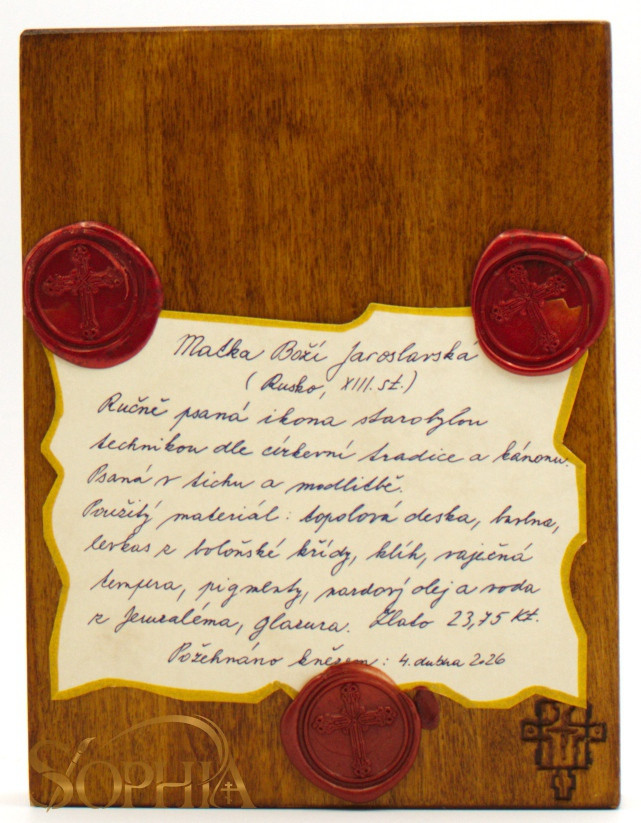 Matka Boží Jaroslavská
(Rusko, XIII. st.)
Ručně psaná ikona starobylou
technikou dle církevní tradice a kánonu.
Psaná v tichu a modlitbě.
Použitý materiál: topolová deska, bavlna,
levkas z boloňské křídy, klíh, vaječná
tempera, pigmenty, nardový olej a voda
z Jeruzaléma, glazura. Zlato 23,75 Kt.
Požehnáno knězem: 4. dubna 2026
SOPHIA